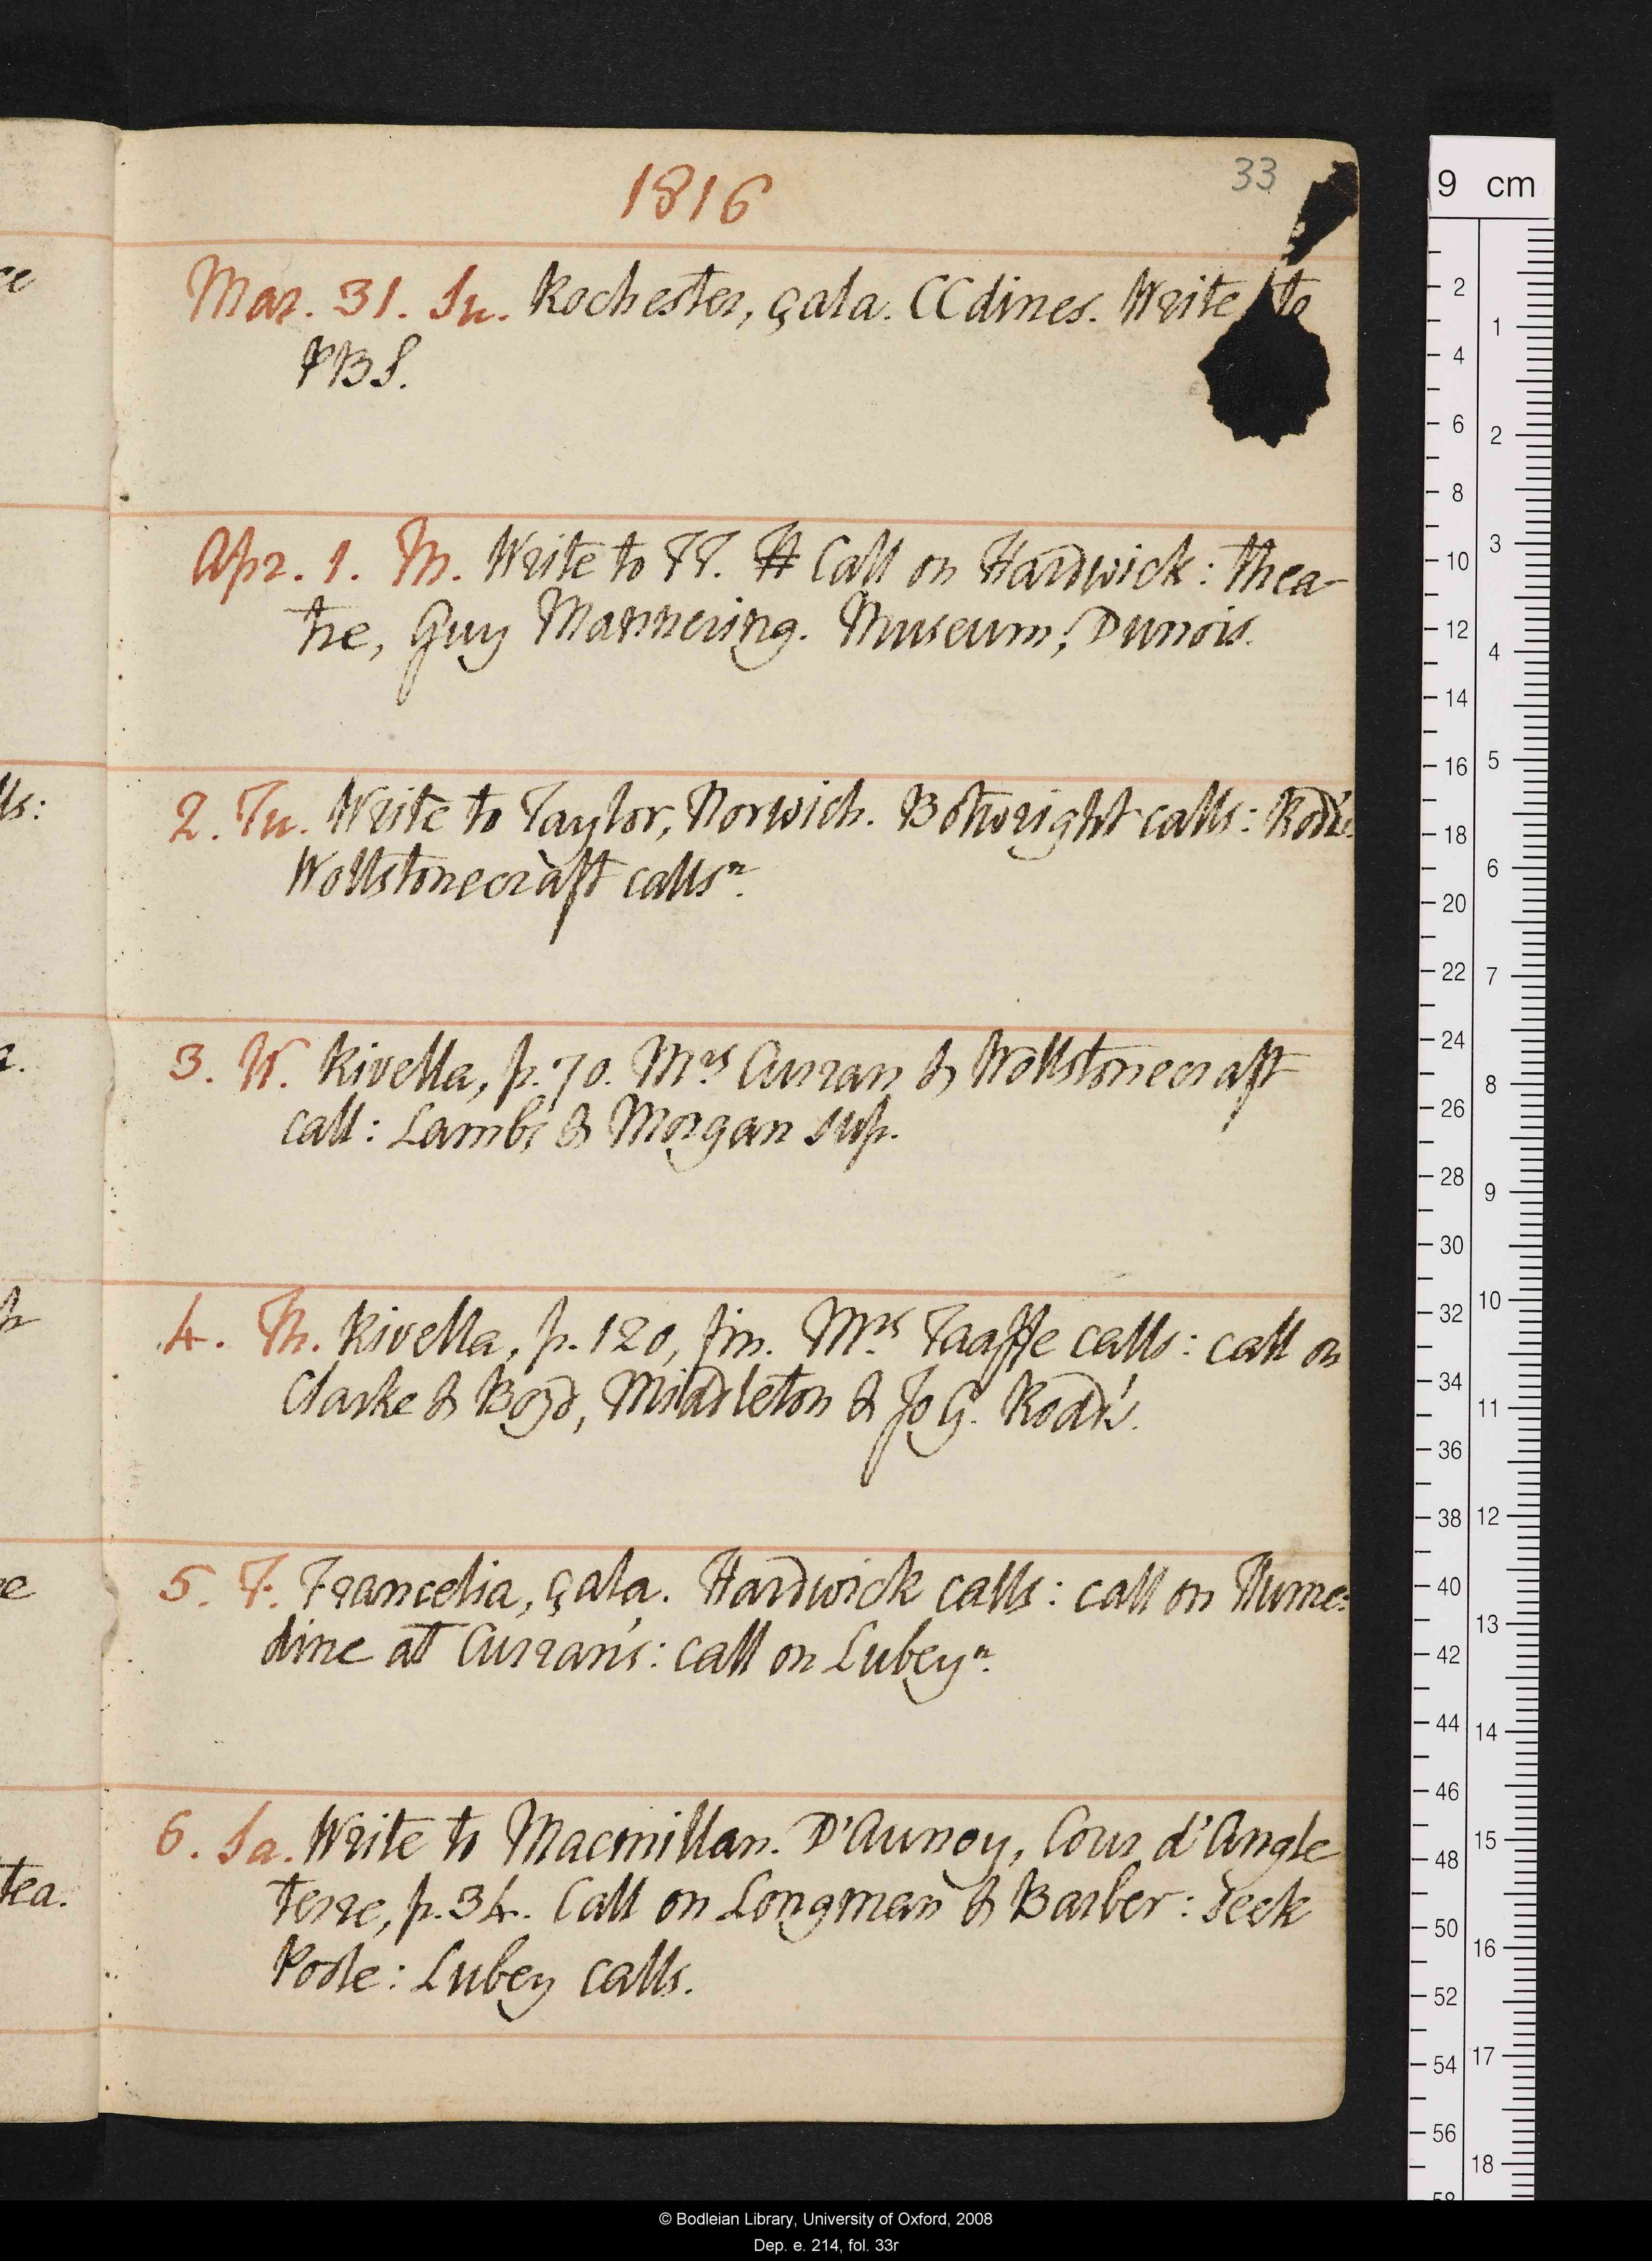 1816
33
Mar. 31. Su. Rochester, çala. CCdines. Write to
PBS.
Apr. 1. M. Write to FF. H Call on Hardwick: thea-
tre, Guy Mannering. Museum; Dunois.
2. Tu. Write to Taylor, Norwich. Botwright calls: Rodd's.
Wollstonecraft calls n.
3. W. Rivella, p. 70. Mrs Curran & Wollstonecraft
call: Lambs & Morgan sup.
4. Th. Rivella, p. 120, fin. Mrs Taaffe calls: call on
Clarke & Boyd, Middleton & Jo G. Rodd's.
5. F. Francelia, çala. Hardwick calls: call on Hume:
dine at Curran's: call on Lubey n.
6. Sa. Write to Macmillan. D'Aunoy, Cour d'Angle
terre, p. 34. Call on Longman & Barber: seek
Poole: Lubey calls.
ce
lls:
a.
h
re
tea.
9 cm
2
4
6
8
10
12
14
16
18
20
22
24
26
28
30
32
34
36
38
40
42
44
46
48
50
52
54
56
58
1
2
3
4
5
6
7
8
9
10
11
12
13
14
15
16
17
18
© Bodleian Library, University of Oxford, 2008
Dep. e. 214, fol. 33r